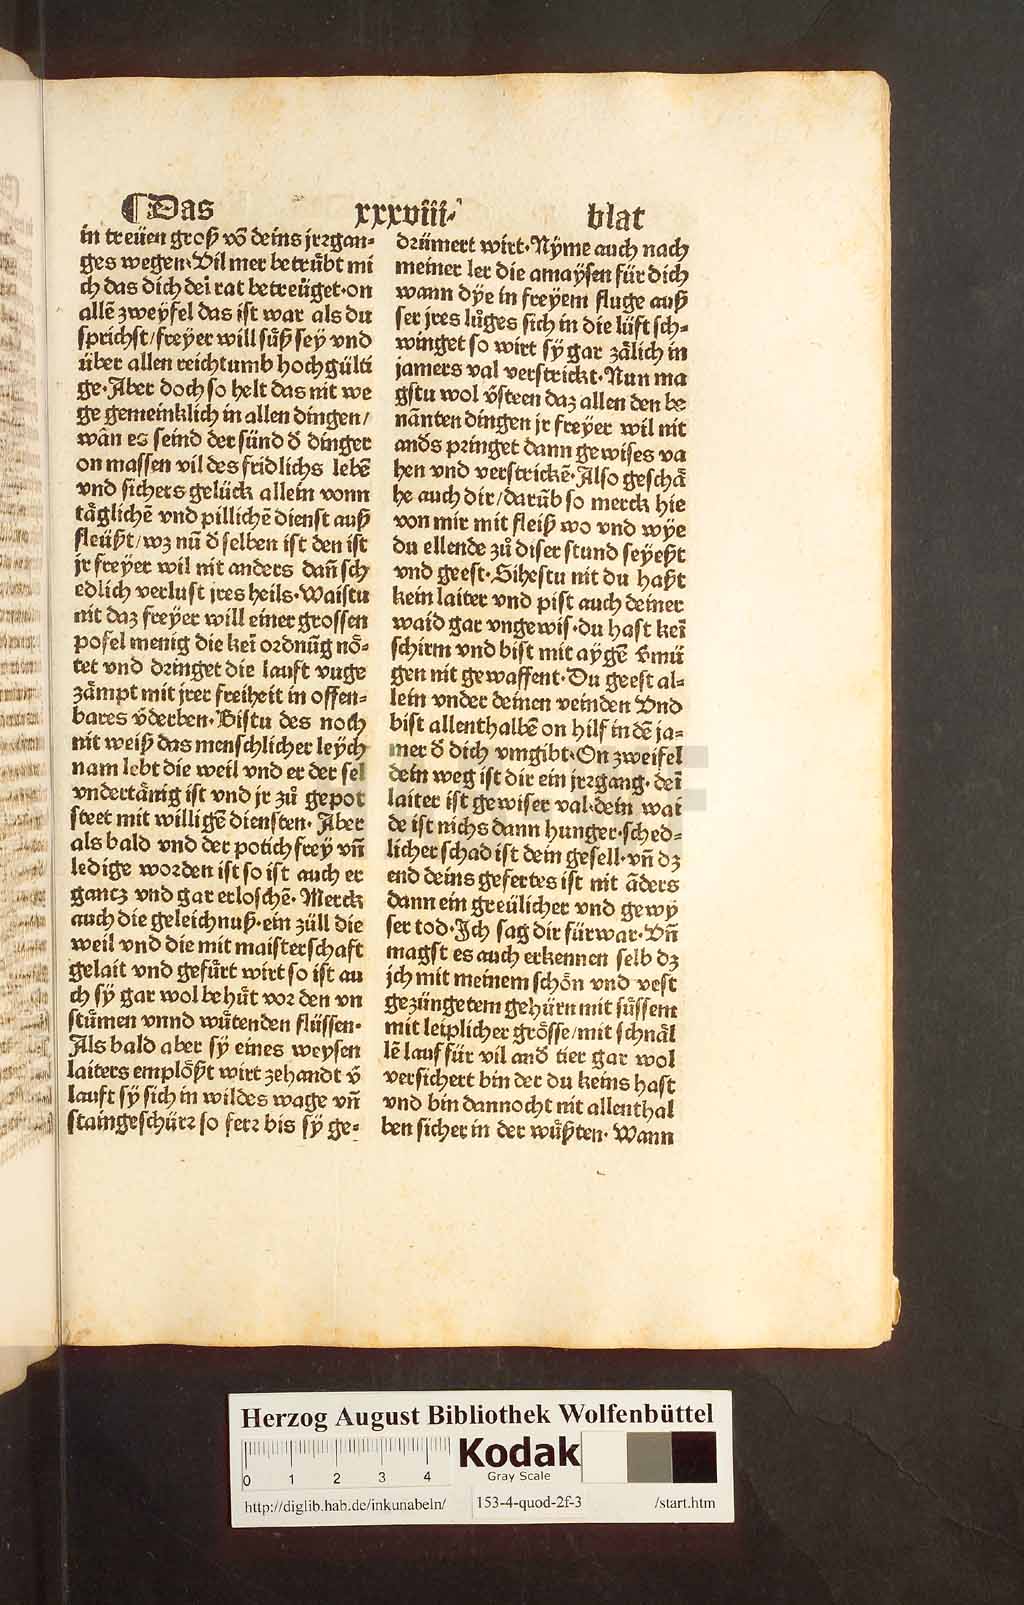 ¶Das xxxviii· blat
in treüen groß võ deins jrrgan-
ges wegen· Vil mer betrübt mi
ch das dich dei rat betreüget·on
allē zweyfel das ist war als du
sprichst/freyer will süß sey vnd
über allen reichtumb hochgülti
ge·Aber doch so helt das nit we
ge gemeinklich in allen dingen/
wān es seind der sünd d̄ dinger
on massen vil des fridlichs lebē
vnd sichers gelück allein vonn
täglichē vnd pillichē dienst auß
fleüßt/wz nū d̄ selben ist den ist
jr freyer wil nit anders dañ sch
edlich verlust jres heils·Waistu
nit daz freyer will einer grossen
pofel menig die kei ordnūg nö-
tet vnd dringet die lauft vnge
zämpt mit jrer freiheit in offen-
bares v̄derben·Bistu des noch
nit weiß das menschlicher leych
nam lebt die weil vnd er der sel
vndertänig ist vnd jr zů gepot
steet mit willigē diensten· Aber
als bald vnd der potich frey vñ
ledige worden ist so ist auch er
gantz vnd gar erloschē·Merck
auch die geleichnuß·ein züll die
weil vnd die mit maisterschaft
gelait vnd gefürt wirt so ist au
ch sÿ gar wol behüt vor den vn
stümen vnnd wütenden flüssen·
Als bald aber sÿ eines weysen
laiters emplößt wirt zehandt v̄
lauft sÿ sich in wildes wage vñ
staingeschürz so ferr bis sÿ ge-
drümert wirt·Nÿme auch nach
meiner ler die amaÿsen für dich
wann dÿe in freyem fluge auß
ser jres lůges sich in die lüft sch-
winget so wirt sÿ gar zälich in
jamers val verstrickt·Nun ma
gstu wol v̄steen daz allen den be
nānten dingen jr freyer wil nit
and̄s pringet dann gewises va
hen vnd verstrickē·Also geschä
he auch dir/darūb so merck hie
von mir mit fleiß wo vnd wÿe
du ellende zů diser stund seyeßt
vnd geest·Sihestu nit du haßt
kein laiter vnd pist auch deiner
waid gar vngewis·du hast kei
schirm vnd bist mit aygē v̄mü
gen nit gewaffent·Du geest al-
lein vnder deinen veinden Vnd
bist allenthalbē on hilf in dē ja-
mer d̄ dich vmgibt·On zweifel
dein weg ist dir ein jrrgang·dei
laiter ist gewiser val·dein wai
de ist nichs dann hunger·sched-
licher schad ist dein gesell·vñ dz
end deins gefertes ist nit āders
dann ein greülicher vnd gewÿ
ser tod·Ich sag dir fürwar·Vñ
magst es auch erkennen selb dz
jch mit meinem schön vnd vest
gezüngetem gehürn mit füssem
mit leiplicher grösse/mit schnäl
lē lauf für vil and̄ tier gar wol
versichert bin der du keins hast
vnd bin dannocht nit allenthal
ben sicher in der wüßten· Wann
Herzog August Bibliothek Wolfenbüttel
0 1 2 3 4
Kodak
Gray Scale
http://diglib.hab.de/inkunabeln/ 153-4-quod-2f-3 /start.htm